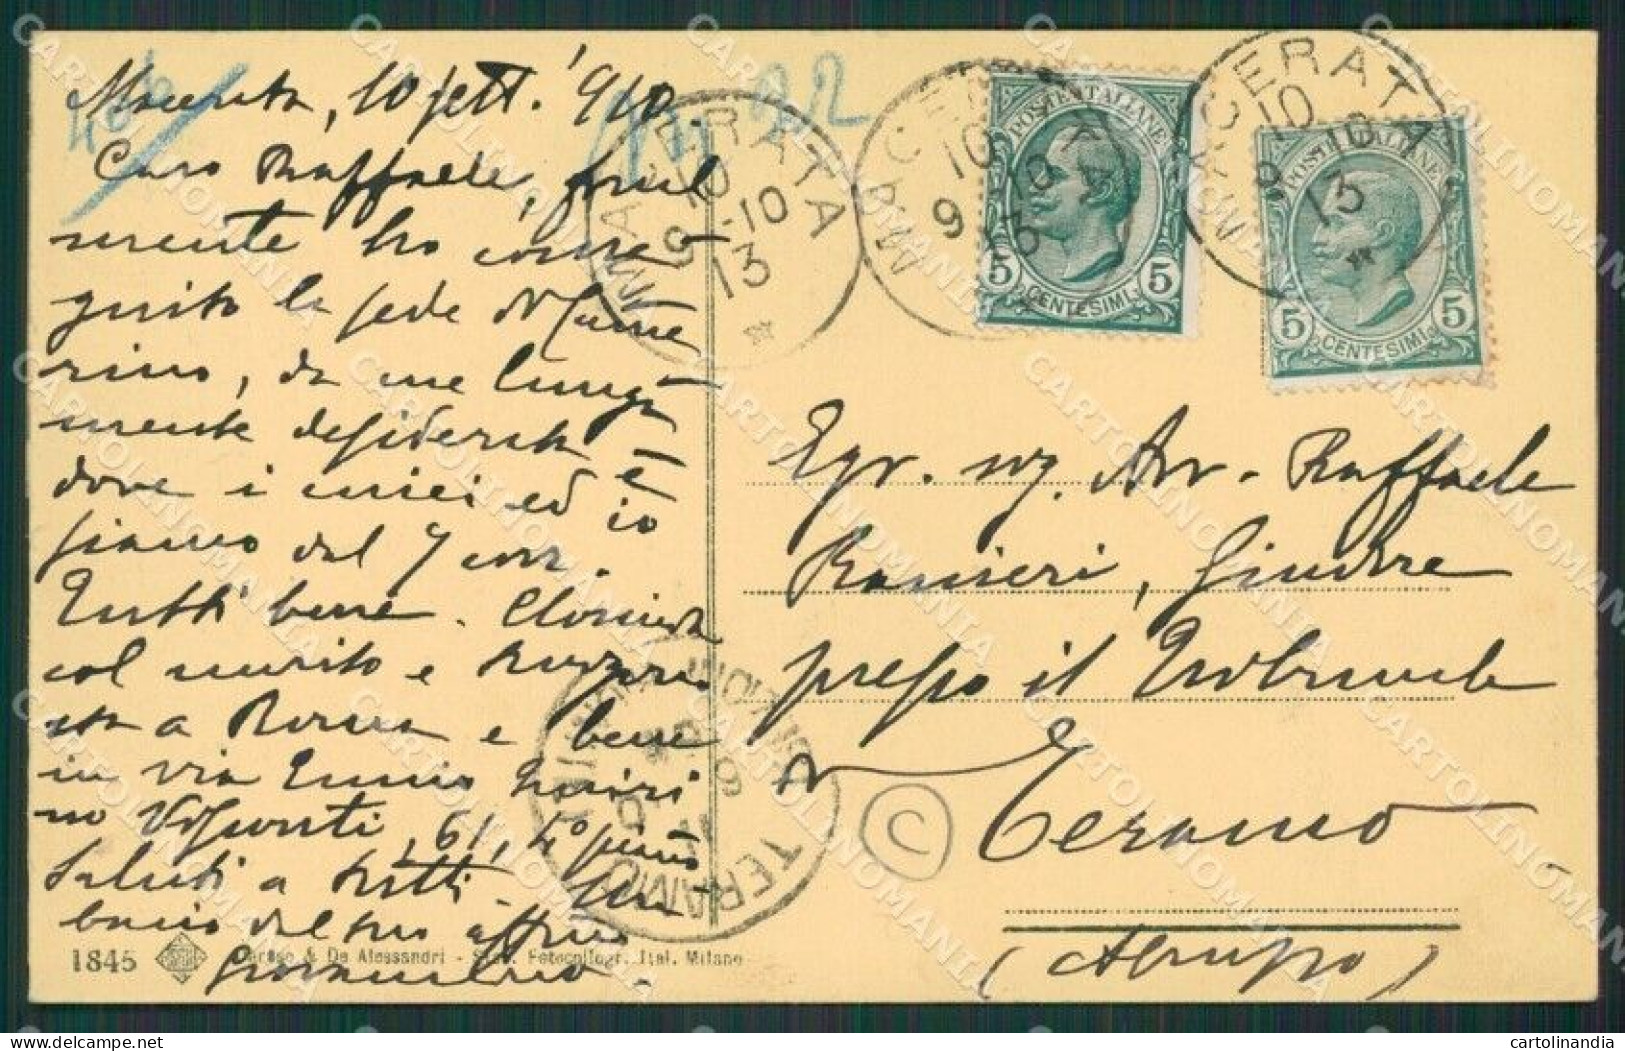 Macerata, 10 sett. 1910.
Caro Raffaele, final
mente ho conse-
guito la sede di Came
rino, da me lunga
mente desiderata e
dove i miei ed io
siamo dal 7 corr.
Tutti bene. Clorinda
col marito e
a Roma e bene
in via Ennio Quiri
no Visconti, 61, 4º piano
Saluti a tutti. Un
bacio dal tuo affmo
Egr. sig. Avv. Raffaele
Ranieri, Giudice
presso il Tribunale
di
Teramo
(Abruzzo)
MACERATA
10
9 -10
13
MACERATA
10
9 10
13
MACERATA
10
9 10
13
POSTE ITALIANE
5 CENTESIMI 5
POSTE ITALIANE
5 CENTESIMI 5
TERAMO
C
1845
& De Alessandri - Stab. Fotocollogr. Ital. Milano
CARTOLINOMANIA
cartolinandia